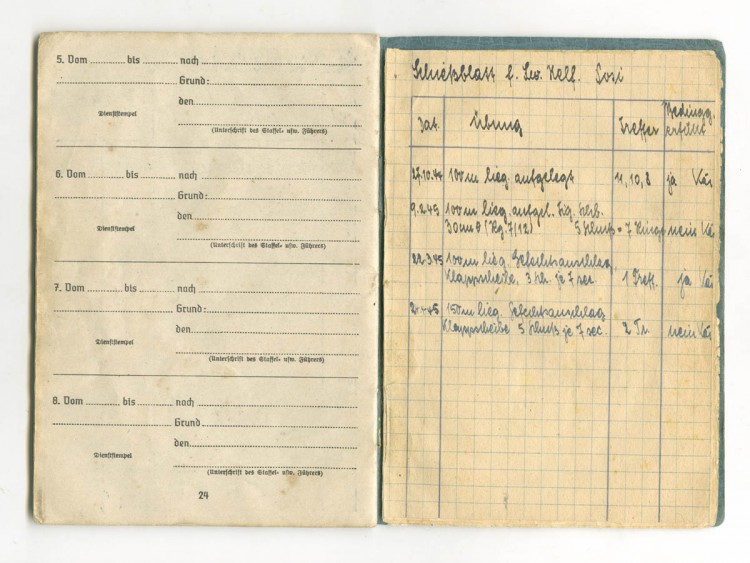 5. Vom ............ bis ........ nach ........
Grund:
den
Dienststempel
(Unterschrift des Staffel- usw. Führers)
6. Vom ............ bis ........ nach ........
Grund:
den
Dienststempel
(Unterschrift des Staffel- usw. Führers)
7. Vom ............ bis ........ nach ........
Grund:
den
Dienststempel
(Unterschrift des Staffel- usw. Führers)
8. Vom ............ bis ........ nach ........
Grund
den
Dienststempel
(Unterschrift des Staffel- usw. Führers)
24
Schießblatt f.
Dat. Übung Treffer Bedingg. erfüllt
27.10.44 100m lieg. aufgelegt 11, 10, 8 ja
9.2.45 100m lieg. aufgel.
30cm (Rg. 7/12) 5 Schuß = 7 Ringe nein
22.3.45 100m lieg. Gefechtsanschlag
Klappscheibe 3 Sch. je 7 sec 1 Treff. ja
150m lieg. Gefechtsanschlag
Klappscheibe 5 Schuß je 7 sec. 2 Tr. nein